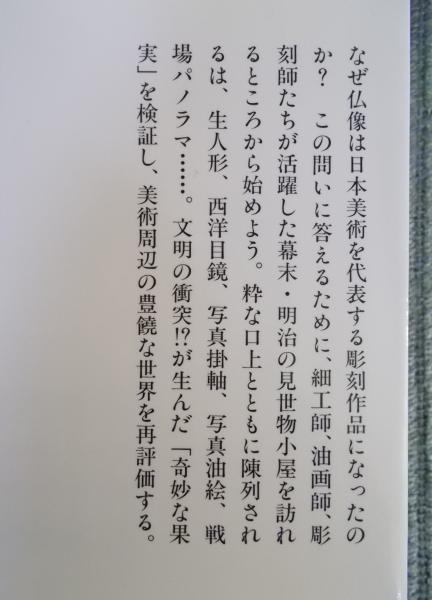 なぜ仏像は日本美術を代表する彫刻作品になったの
か？　この問いに答えるために、細工師、油画師、彫
刻師たちが活躍した幕末・明治の見世物小屋を訪れ
るところから始めよう。粋な口上とともに陳列され
るは、生人形、西洋目鏡、写真掛軸、写真油絵、戦
場パノラマ……。文明の衝突!?が生んだ「奇妙な果
実」を検証し、美術周辺の豊饒な世界を再評価する。